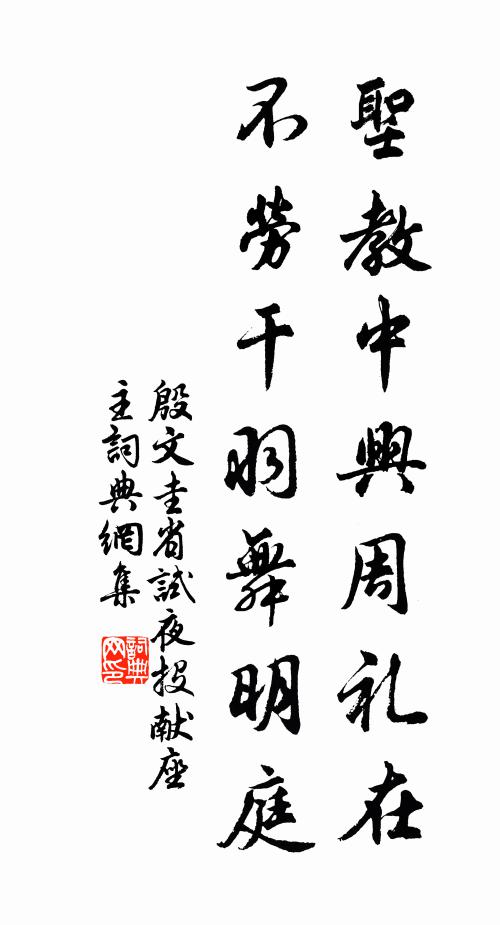 聖教中興周礼在
不勞干羽舞明庭
殷文圭省試夜投献座
主詞典網集
詞典网印